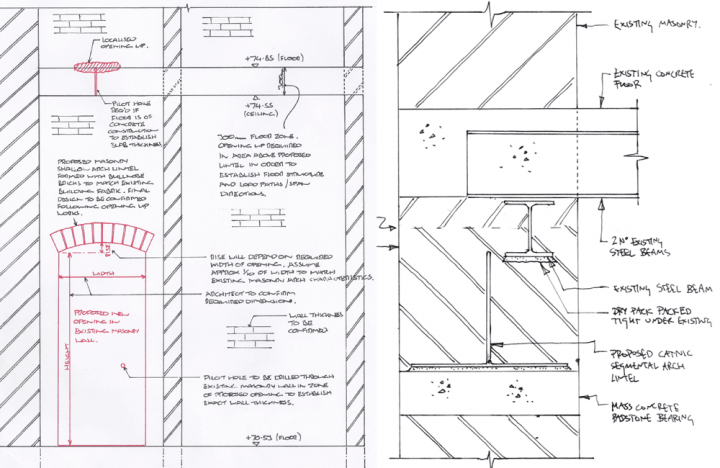 LOCALISED
OPENING UP.
+74.85 (FLOOR)
+74.55
(CEILING)
PILOT HOLE
REQ'D IF
FLOOR IS OF
CONCRETE
CONSTRUCTION
TO ESTABLISH
SLAB THICKNESS.
300mm FLOOR ZONE.
OPENING UP REQUIRED
IN AREA ABOVE PROPOSED
LINTEL IN ORDER TO
ESTABLISH FLOOR STRUCTURE
AND LOAD PATHS / SPAN
DIRECTIONS.
PROPOSED MASONRY
SHALLOW ARCH LINTEL
FORMED WITH BULLNOSE
BRICKS TO MATCH EXISTING
BUILDING FABRIC. FINAL
DESIGN TO BE CONFIRMED
FOLLOWING OPENING UP
WORKS.
RISE
RISE WILL DEPEND ON REQUIRED
WIDTH OF OPENING. ASSUME
APPROX 1/10 OF WIDTH TO MATCH
EXISTING MASONRY ARCH CHARACTERISTICS.
WIDTH
ARCHITECT TO CONFIRM
REQUIRED DIMENSIONS.
PROPOSED NEW
OPENING IN
EXISTING MASONRY
WALL.
HEIGHT
WALL THICKNESS
TO BE
CONFIRMED
PILOT HOLE TO BE DRILLED THROUGH
EXISTING MASONRY WALL IN ZONE
OF PROPOSED OPENING TO ESTABLISH
EXACT WALL THICKNESS.
+70.53 (FLOOR)
EXISTING MASONRY.
EXISTING CONCRETE
FLOOR
2 No EXISTING
STEEL BEAMS
EXISTING STEEL BEAM
DRY PACK PACKED
TIGHT UNDER EXISTING
PROPOSED CATNIC
SEGMENTAL ARCH
LINTEL
MASS CONCRETE
PADSTONE BEARING